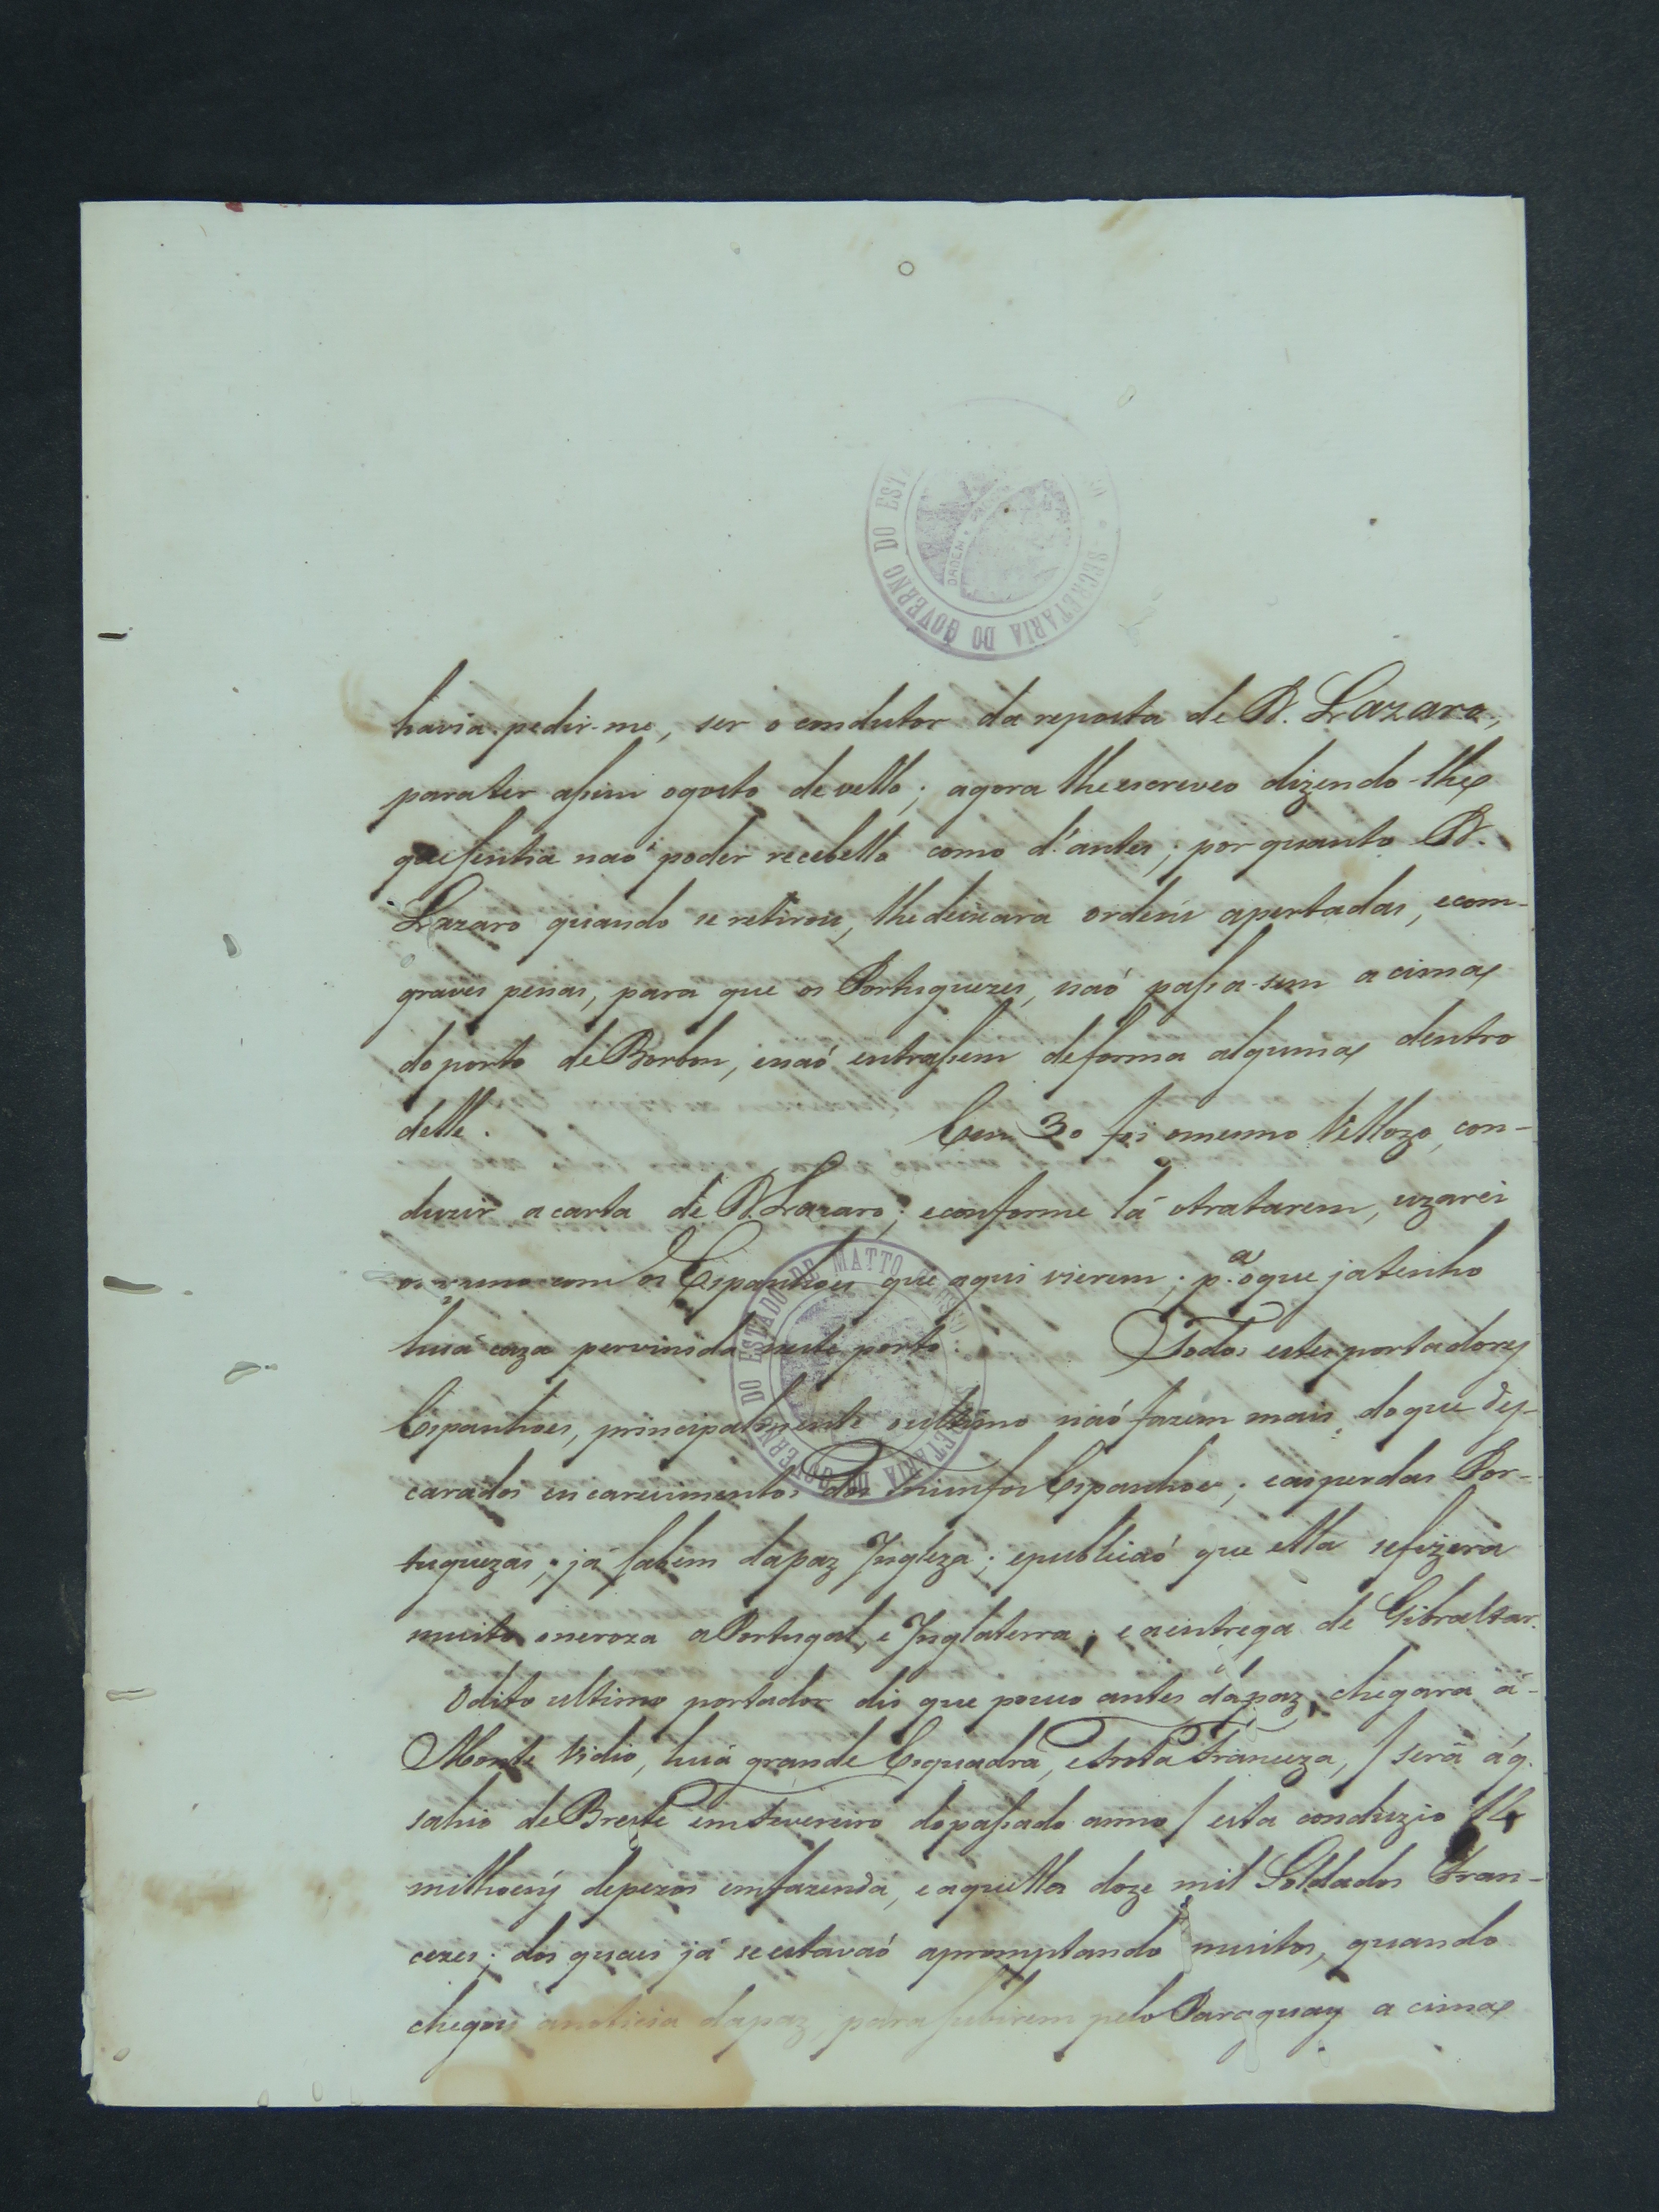 SECRETARIA DO GOVERNO DO EST
ORDEM
havia pedir-me, ser o condutor da reposta de D. Lazaro,
para ter assim o gosto de vello; agora lhe escreveo dizendo-lhe
que sentia naõ poder recebello como d'antes; por quanto D.
Lazaro quando se retirou, lhe deixara ordens apertadas, e com-
graves penas, para que os Portuguezes, naõ passa-sem acima
do porto de Borbon, e naõ entrassem de forma alguma dentro
délle. Em 30 foi o mesmo Vellozo, con-
duzir a carta de D. Lazaro; e conforme lá o tratarem, uzarei
o mesmo com os Espanhoes que aqui vierem; p.ª o que ja tenho
huã caza pervinida neste porto. Todos estes portadores
Espanhoes, principalmente o ultimo naõ fazem mais, do que des-
carados encarecimentos dos triunfos Espanhoes; e as perdas Por-
tuguezas; já sabem da paz Ingleza; e publicaõ que ella se fizera
muito oneroza a Portugal, e Inglaterra; e a entrega de Gibraltar.
O dito ultimo portador dis que pouco antes da paz, chegara á-
Monte Vidio, huã grande Esquadra, e frota Franceza, / será á q.
sahio de Breste em Fevereiro do passado anno / esta conduzio 14
milhoens de pezos em fazenda, e aquella doze mil Soldados Fran-
cezes; dos quais já se estavaõ apromptando muitos, quando
chegou a noticia da paz, para subirem pelo Paraguay acima
SECRETARIA DO GOVERNO DO ESTADO DE MATTO GROSSO